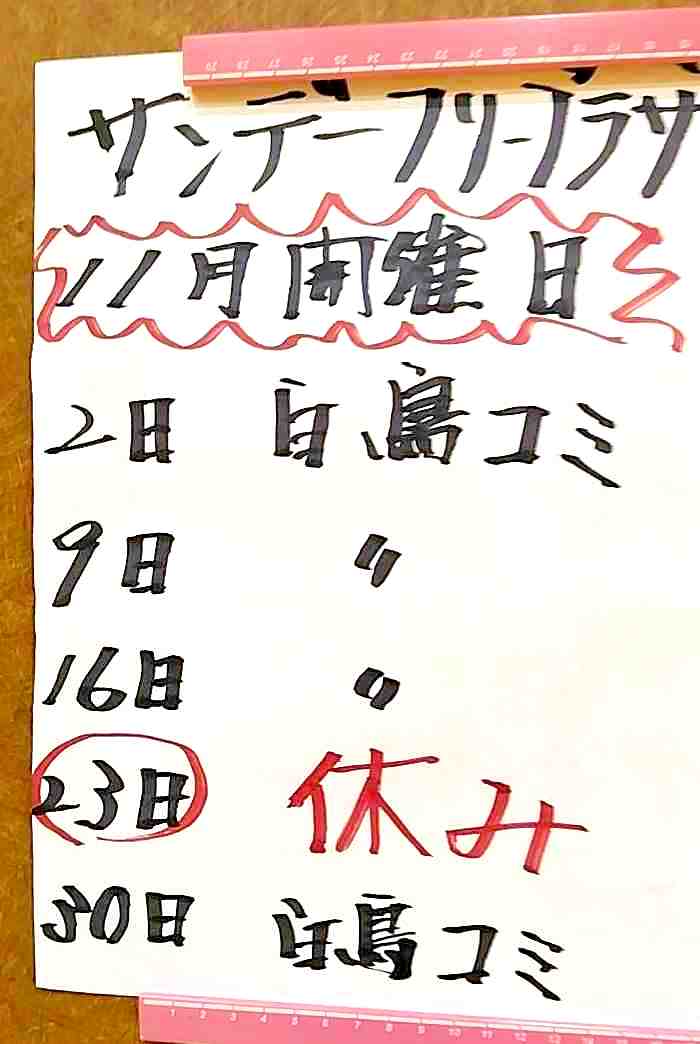 サンデーフリープラザ
11月開催日
2日 白鳥コミ
9日 〃
16日 〃
23日 休み
30日 白鳥コミ